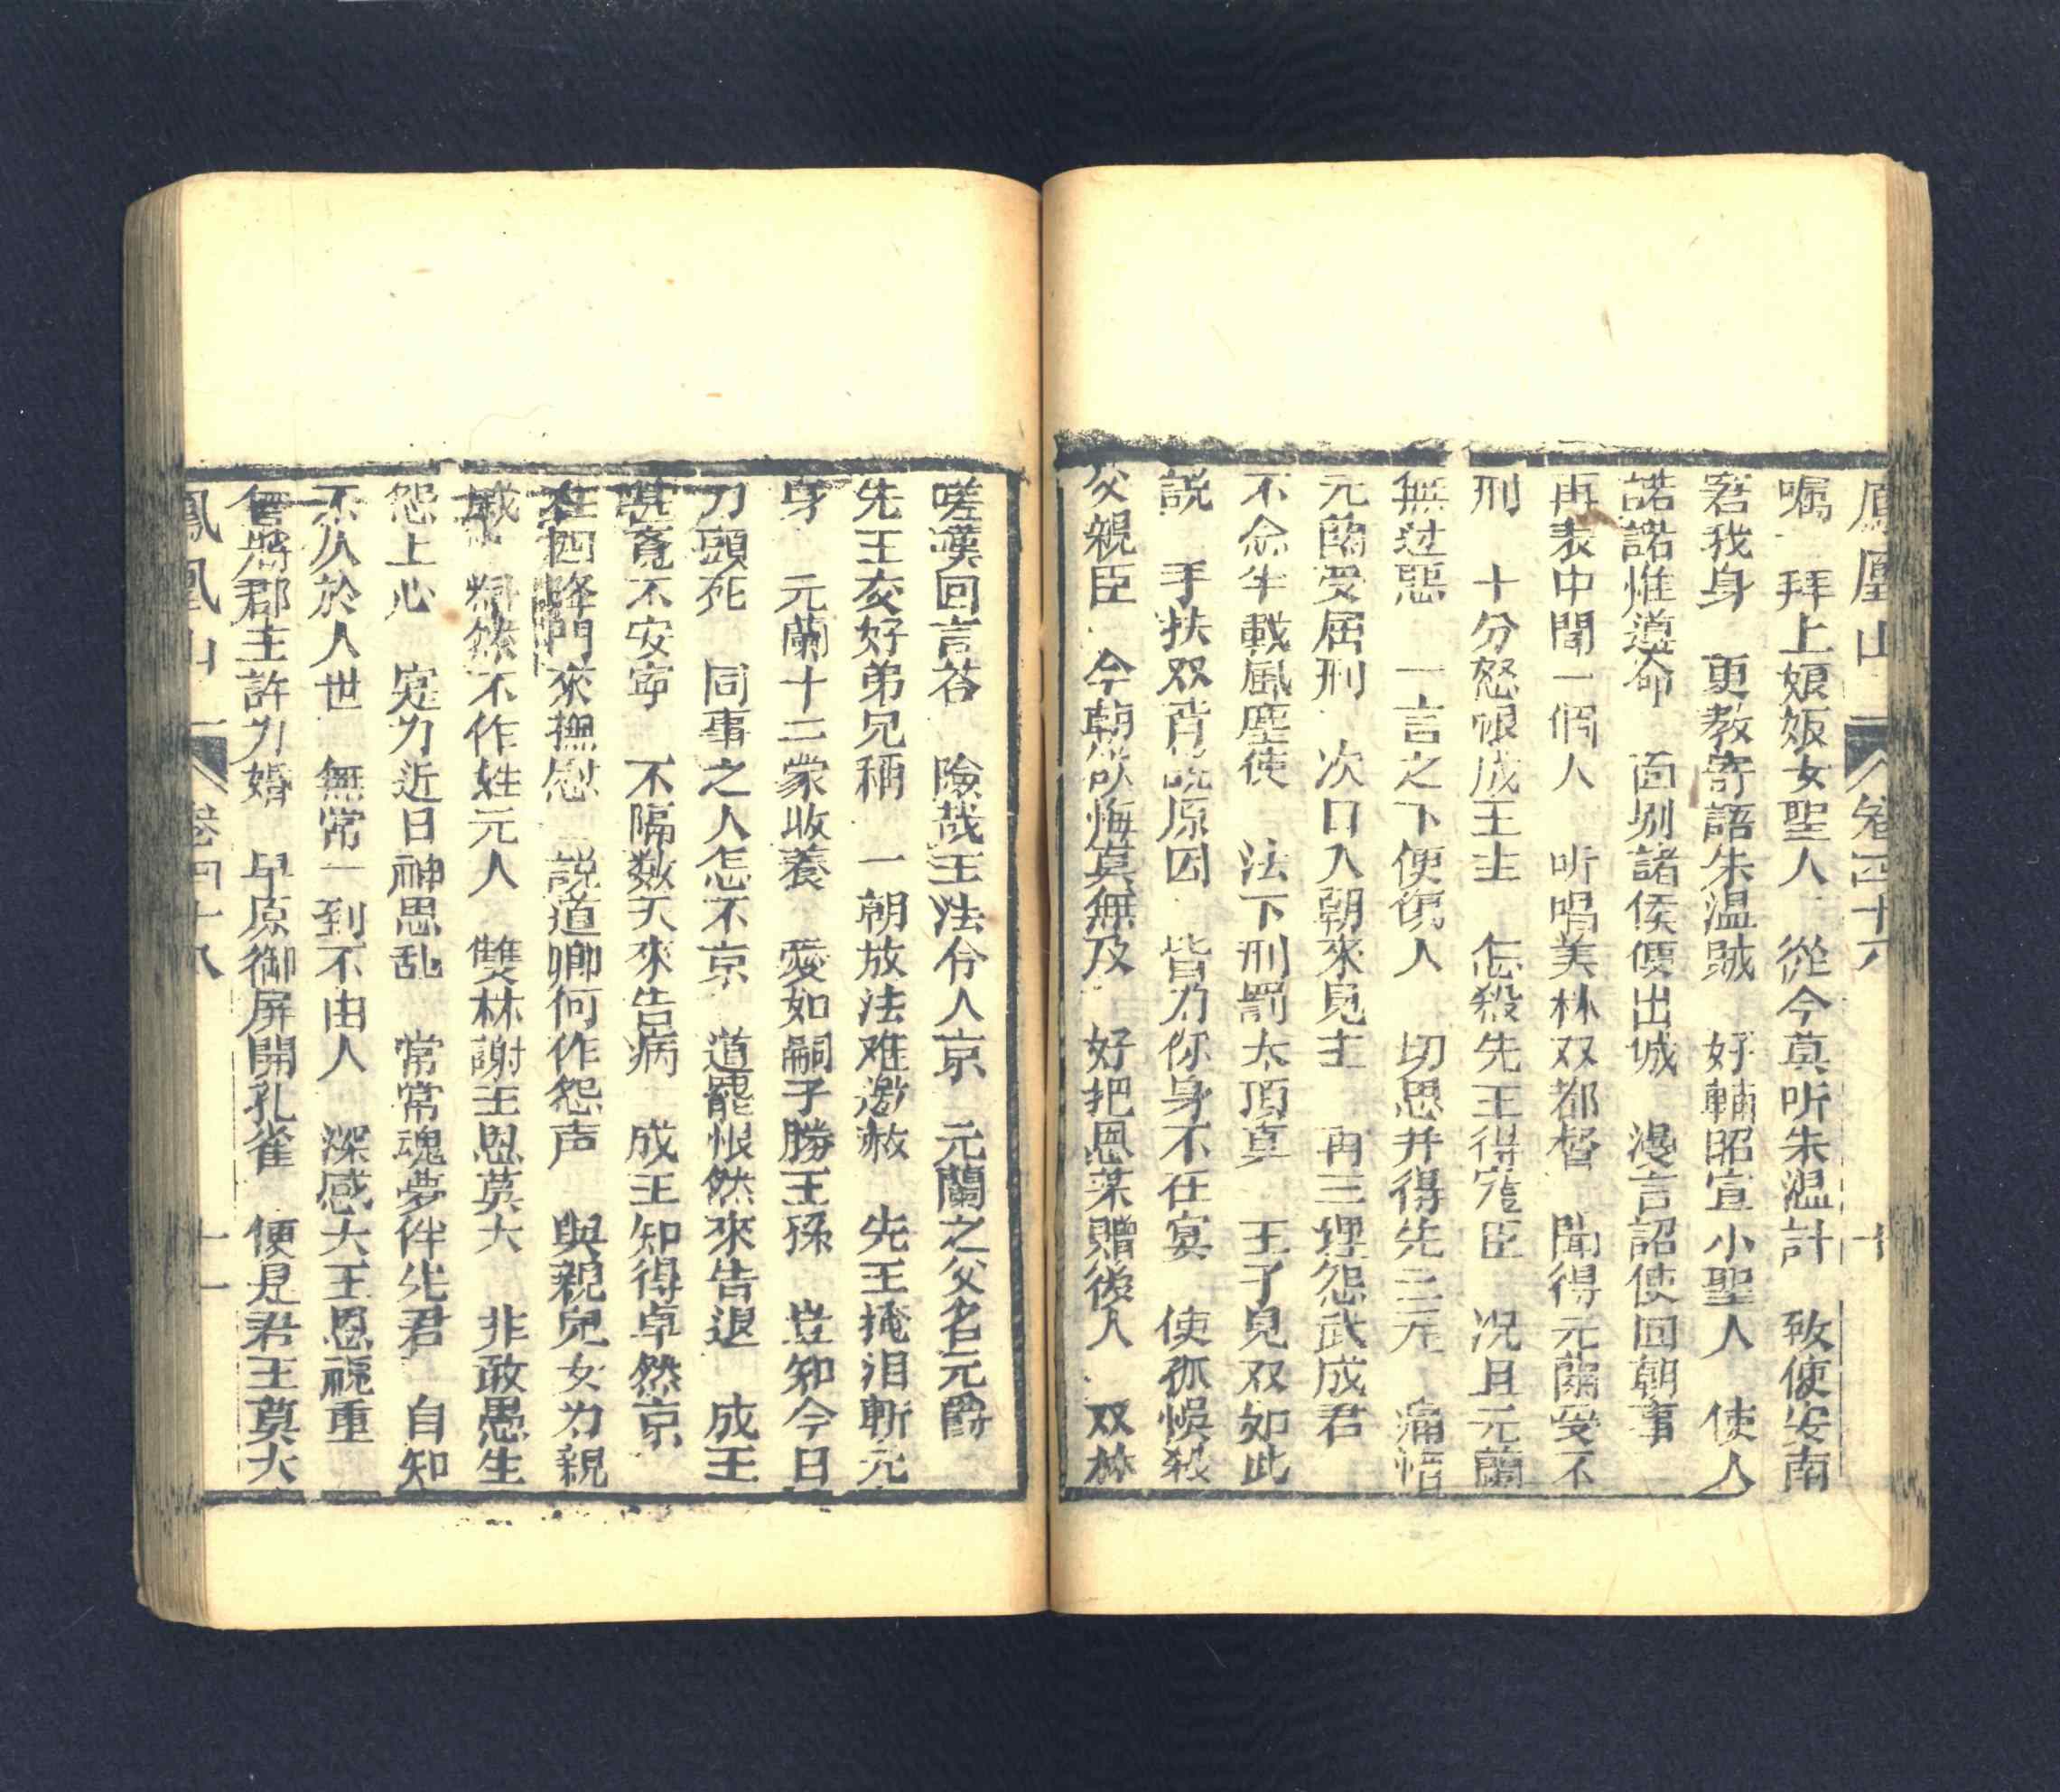 鳳凰山 卷四十八 十
嘱 拜上娘娘女聖人 從今莫听朱温計 致使安南
窘我身 更教寄語朱温賊 好輔昭宣小聖人 使人
諾諾惟遵命 面别諸侯便出城 漫言詔使回朝事
再表中間一個人 听唱美林双都督 聞得元蘭受不
刑 十分怒恨成王主 怎殺先王得寵臣 况且元蘭
無过惡 一言之下便傷人 切思并得先王元 痛惜
元蘭受屈刑 次日入朝來見主 再三埋怨武成君
不念半載風塵使 法下刑罰太頂真 王子見双如此
説 手扶双背説原因 皆为你身不在宴 使孤悞殺
父親臣 今朝欲悔莫無及 好把恩荣贈後人 双林
嗟嘆回言荅 險哉王法令人京 元蘭之父名元爵
先王交好弟兄稱 一朝放法难邀赦 先王掩泪斬元
身 元蘭十二蒙收養 愛如嗣子勝王孫 豈知今日
刀頭死 同事之人怎不京 道罷悵然來告退 成王
寢不安寧 不隔数天來告病 成王知得卓然京
往西降門來撫慰 説道卿何作怨声 與親兒女为親
戚 糾然不作姓元人 雙林謝王恩莫大 非敢愚生
怨上心 寔为近日神思乱 常常魂夢伴先君 自知
不久於人世 無常一到不由人 深感大王恩寵重
曾將郡主許为婚 早原御屏開孔雀 便是君王莫大
鳳凰山 卷四十八 十一